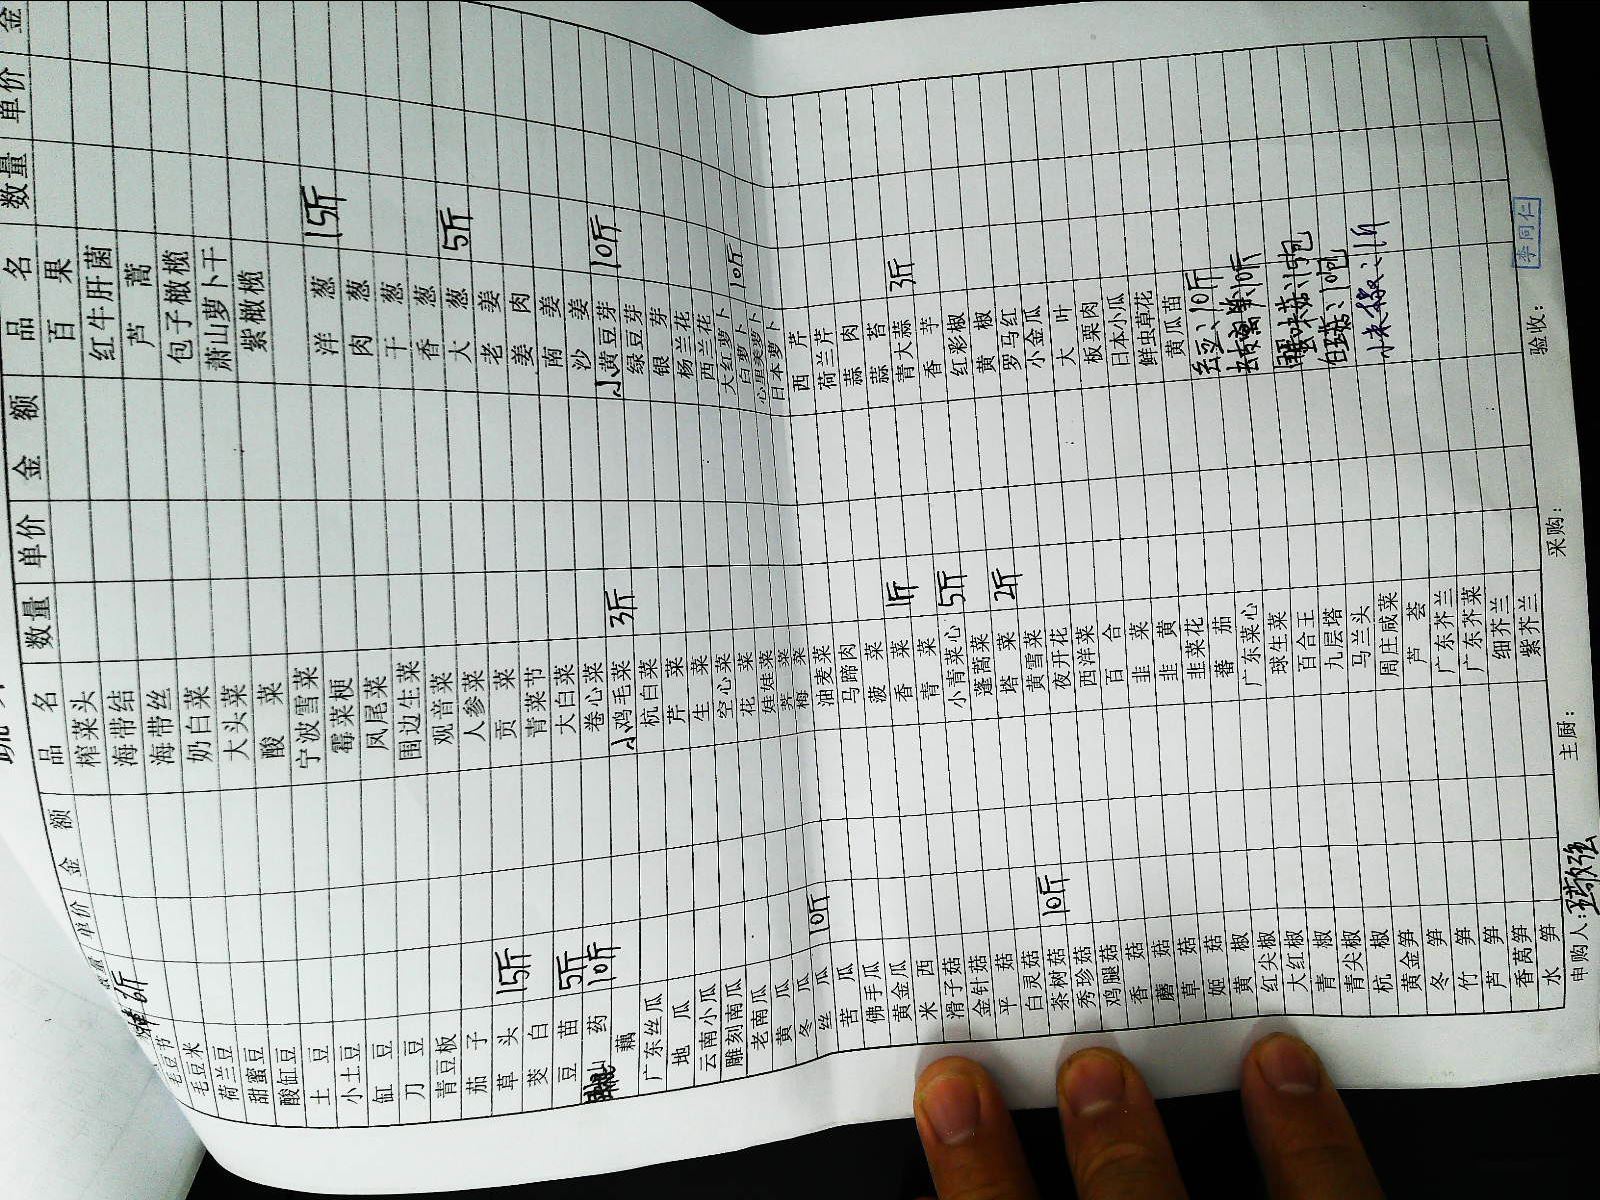 数量 单价 金 额 品 名 数量 单价 金 额 品 名 数量 单价 金
6斤 榨菜头 百 果
毛豆节 海带结 红牛肝菌
毛豆米 海带丝 芦 蒿
荷兰豆 奶白菜 包子橄榄
甜蜜豆 大头菜 萧山萝卜干
酸缸豆 酸 菜 紫橄榄
土 豆 宁波雪菜
小土豆 霉菜梗 洋 葱 15斤
缸 豆 凤尾菜 肉 葱
刀 豆 围边生菜 干 葱
青豆板 观音菜 香 葱
茄 子 人参菜 大 葱 5斤
草 头 15斤 贡 菜 老 姜
茭 白 青菜节 姜 肉
豆 苗 5斤 大白菜 南 姜
山 药 10斤 卷心菜 沙 姜
藕 小鸡毛菜 3斤 小黄豆芽 10斤
广东丝瓜 杭白菜 绿豆芽
地 瓜 芹 菜 银 芽
云南小瓜 生 菜 杨兰花
雕刻南瓜 空心菜 西兰花
老南瓜 花 菜 大红萝卜
黄 瓜 娃娃菜 白萝卜 10斤
冬 瓜 荠 菜 心里美萝卜
丝 瓜 10斤 梅 菜 日本萝卜
苦 瓜 油麦菜 西 芹
佛手瓜 马蹄肉 荷兰芹
黄金瓜 菠 菜 蒜 肉
米 西 香 菜 1斤 蒜 苔
滑子菇 青 菜 青大蒜 3斤
金针菇 小青菜心 5斤 香 芋
平 菇 蓬蒿菜 红彩椒
白灵菇 塔 菜 2斤 黄 椒
茶树菇 10斤 黄雪菜 罗马红
秀珍菇 夜开花 小金瓜
鸡腿菇 西洋菜 大 叶
香 菇 百 合 板栗肉
蘑 菇 韭 菜 日本小瓜
草 菇 韭 黄 鲜虫草花
姬 菇 韭菜花 黄瓜苗
黄 椒 蕃 茄 10斤
红尖椒 广东菜心 10斤
大红椒 球生菜
青 椒 百合王
青尖椒 九层塔
杭 椒 马兰头 小米椒
黄金笋 周庄咸菜
冬 笋 芦 荟
竹 笋 广东芥兰
芦 笋 广东芥菜
香莴笋 细芥兰
水 笋 紫芥兰
申购人: 主厨: 采购: 验收: 李同仁